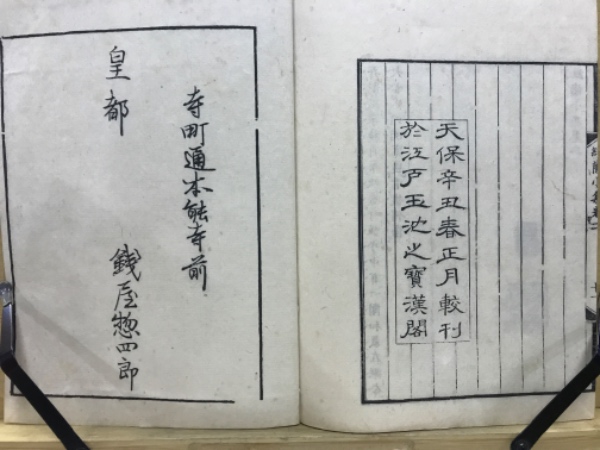 天保辛丑春正月較刊
於江戸玉池之寶漢閣
寺町通本能寺前
皇都
錢屋惣四郎